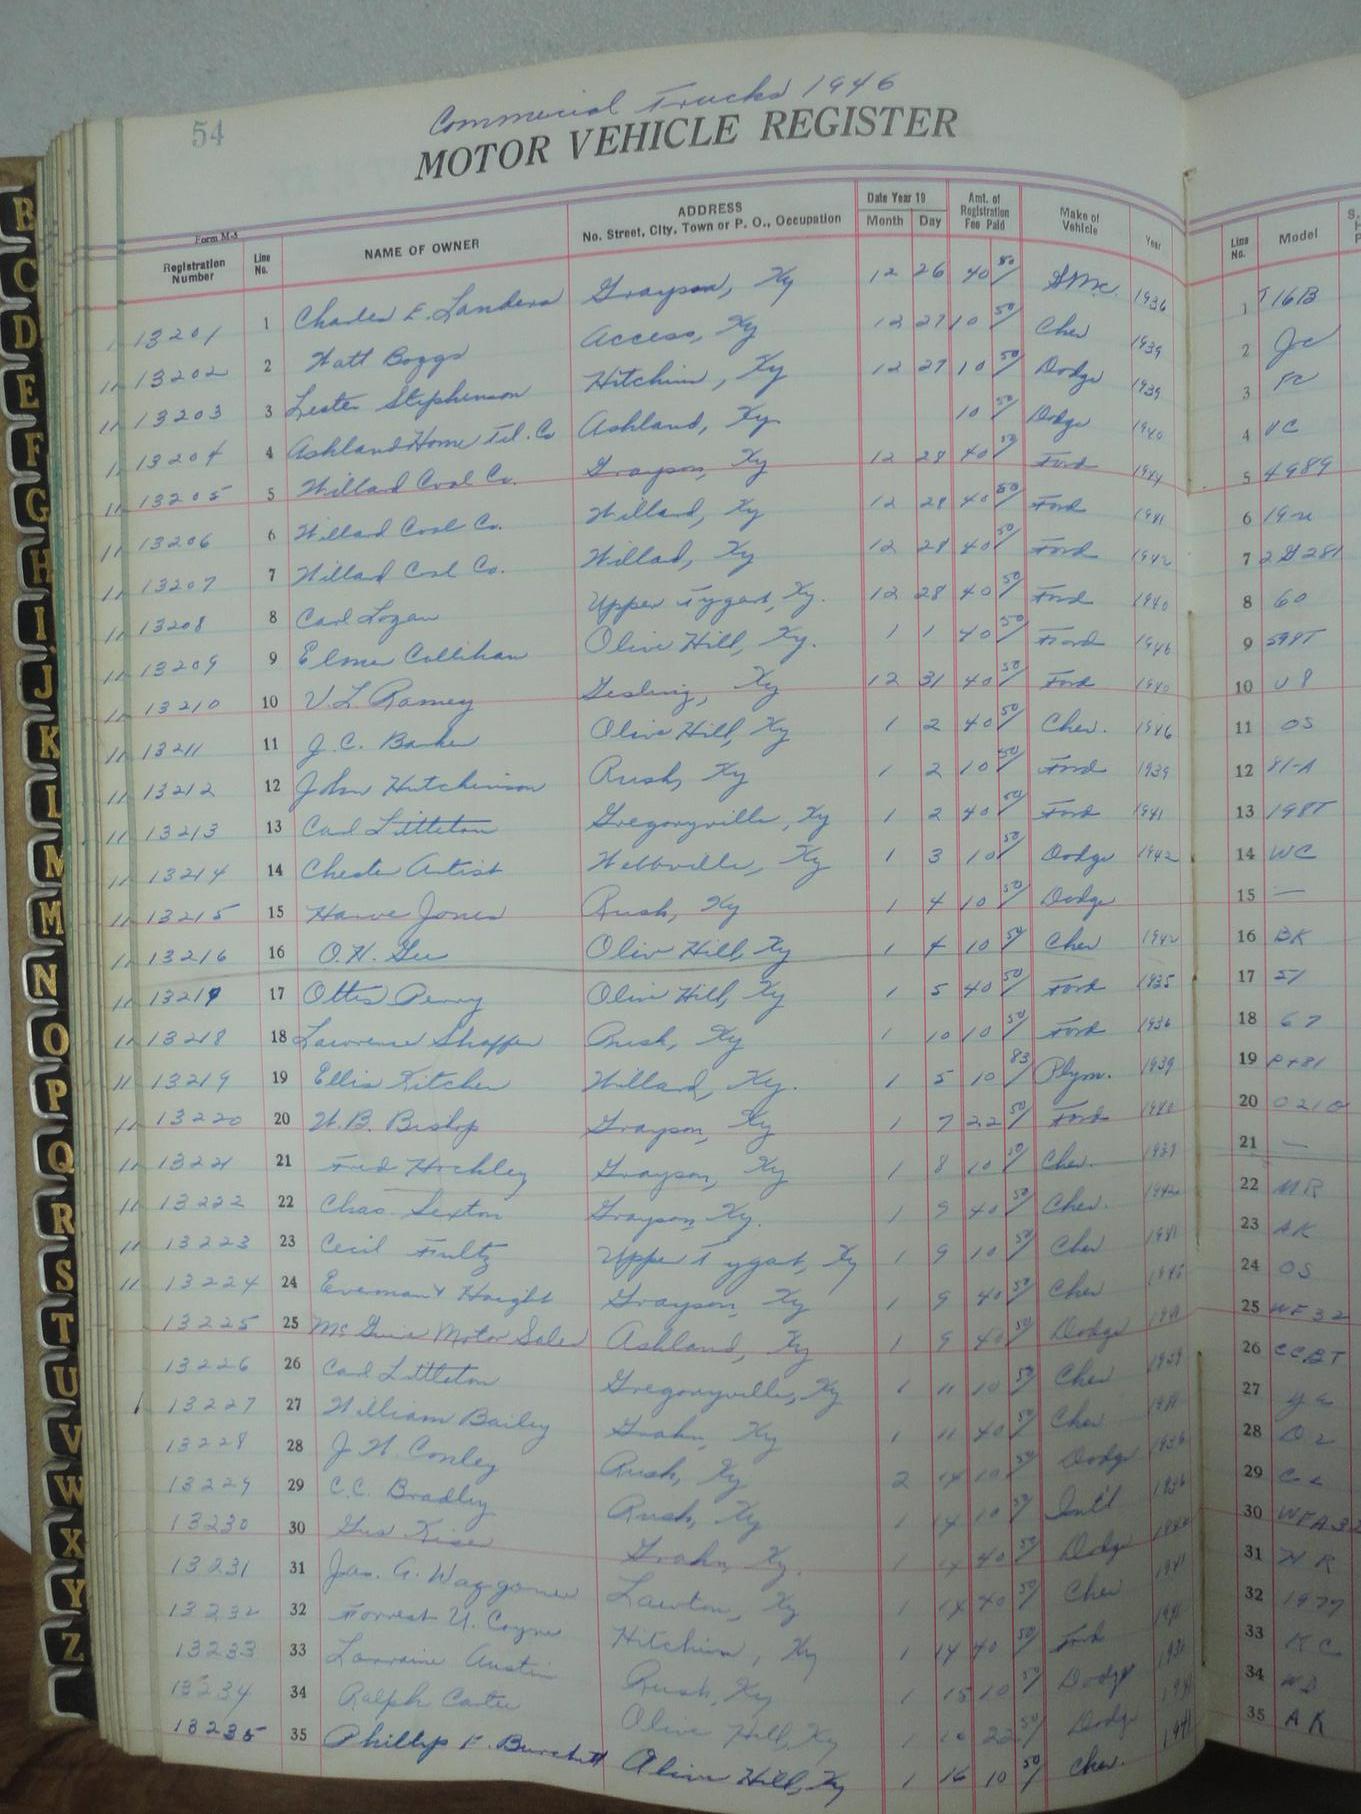 54
Commercial Trucks 1946
MOTOR VEHICLE REGISTER
Form M-5
Registration Number Line No. NAME OF OWNER ADDRESS No. Street, City, Town or P. O., Occupation Date Year 19 Month Day Amt. of Registration Fee Paid Make of Vehicle Year Line No. Model
13201 1 Charles E. Landers Grayson, Ky 12 26 40 50 GMC. 1936 1 T16B
11 13202 2 Watt Boggs Access, Ky 12 27 10 50 Chev 1939 2 JC
11 13203 3 Lester Stephenson Hitchins, Ky 12 27 10 50 Dodge 1939 3
11 13204 4 Ashland Home Tel. Co Ashland, Ky 10 50 Dodge 1940 4 VC
11 13205 5 Willard Coal Co. Grayson, Ky 12 28 40 50 Ford 1944 5 4989
11 13206 6 Willard Coal Co. Willard, Ky 12 28 40 50 Ford 1941 6
11 13207 7 Willard Coal Co. Willad, Ky 12 28 40 50 Ford 1942 7 2G281
11 13208 8 Carl Logan Upper Tygart, Ky. 12 28 40 50 Ford 1940 8 60
11 13209 9 Elmer Callihan Olive Hill, Ky. 1 1 40 50 Ford 1946 9 599T
11 13210 10 V.L. Ramey Gesling, Ky 12 31 40 50 Ford 1940 10 V8
11 13211 11 J.C. Barker Olive Hill, Ky 1 2 40 50 Chev. 1946 11 OS
11 13212 12 John Hutchinson Rush, Ky 1 2 10 50 Ford 1939 12 81-A
11 13213 13 Carl Littleton Gregoryville, Ky 1 2 40 50 Ford 1941 13 198T
11 13214 14 Chester Artist Webbville, Ky 1 3 10 50 Dodge 1942 14 WC
11 13215 15 Harve Jones Rush, Ky 1 4 10 50 Dodge 15 —
11 13216 16 O.H. Gee Olive Hill, Ky 1 4 10 50 Chev 1942 16 BK
11 13217 17 Ottis Perry Olive Hill, Ky 1 5 40 50 Ford 1935 17 51
11 13218 18 Lawrence Shaffer Rush, Ky 1 10 10 50 Ford 1936 18 67
11 13219 19 Ellis Kitchen Willard, Ky. 1 5 10 83 Plym. 1939 19 PT81
11 13220 20 W.B. Bishop Grayson, Ky 1 7 22 50 Ford 1940 20
11 13221 21 Fred Hockley Grayson, Ky 1 8 10 50 Chev. 1937 21 —
11 13222 22 Chas. Sexton Grayson, Ky. 1 9 40 50 Chev. 1942 22 MR
11 13223 23 Cecil Fultz Upper Tygart, Ky 1 9 10 50 Chev 1941 23 AK
11 13224 24 Everman & Haight Grayson, Ky 1 9 40 50 Chev 24 OS
13225 25 McGuire Motor Sales Ashland, Ky 1 9 40 50 Dodge 25 WF32
13226 26 Carl Littleton Gregoryville, Ky 1 11 10 50 Chev 1939 26
13227 27 William Bailey Grahn, Ky 1 11 40 50 Chev 27
13228 28 J.W. Conley Rush, Ky 2 14 10 50 Dodge 1936 28 D2
13229 29 C.C. Bradley Rush, Ky 1 14 10 50 Int'l 1936 29
13230 30 Gus Kiser Grahn, Ky. 1 14 40 50 Dodge 30 WFA32
13231 31 Jas. A. Waggoner Lawton, Ky 1 14 40 50 Chev 1941 31
13232 32 Forrest U. Coyne Hitchins, Ky 1 14 40 50 Ford 32
13233 33 Lorraine Austin Rush, Ky 1 15 10 50 Dodge 33 KC
13234 34 Ralph Carter Olive Hill, Ky 1 16 22 50 Dodge 34
13235 35 Phillip F. Burchett Olive Hill, Ky 1 16 10 50 Chev. 1941 35 AK
B
C
D
E
F
G
H
I
J
K
L
M
M
N
O
P
Q
R
S
T
U
V
W
X
Y
Z